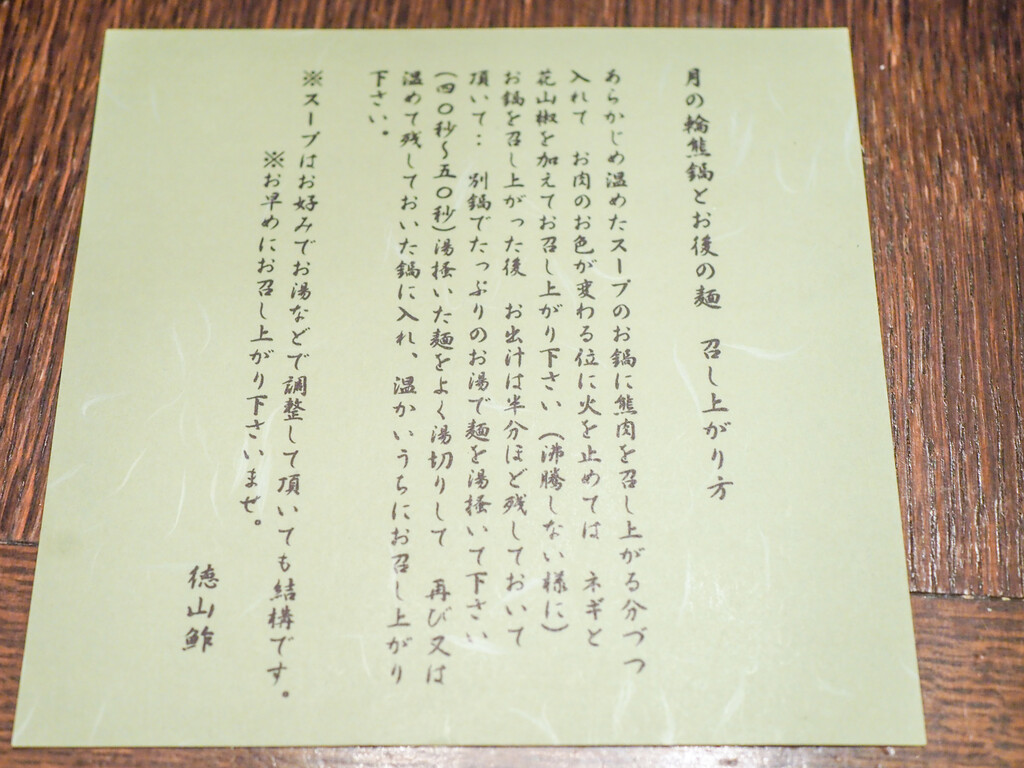 月の輪熊鍋とお後の麺　召し上がり方
あらかじめ温めたスープのお鍋に熊肉を召し上がる分づつ
入れて　お肉のお色が変わる位に火を止めては　ネギと
花山椒を加えてお召し上がり下さい（沸騰しない様に）
お鍋を召し上がった後　お出汁は半分ほど残しておいて
頂いて‥　別鍋でたっぷりのお湯で麺を湯掻いて下さい
（四〇秒～五〇秒）湯掻いた麺をよく湯切りして　再び又は
温めて残しておいた鍋に入れ、温かいうちにお召し上がり
下さい。
※スープはお好みでお湯などで調整して頂いても結構です。
※お早めにお召し上がり下さいませ。
徳山鮓